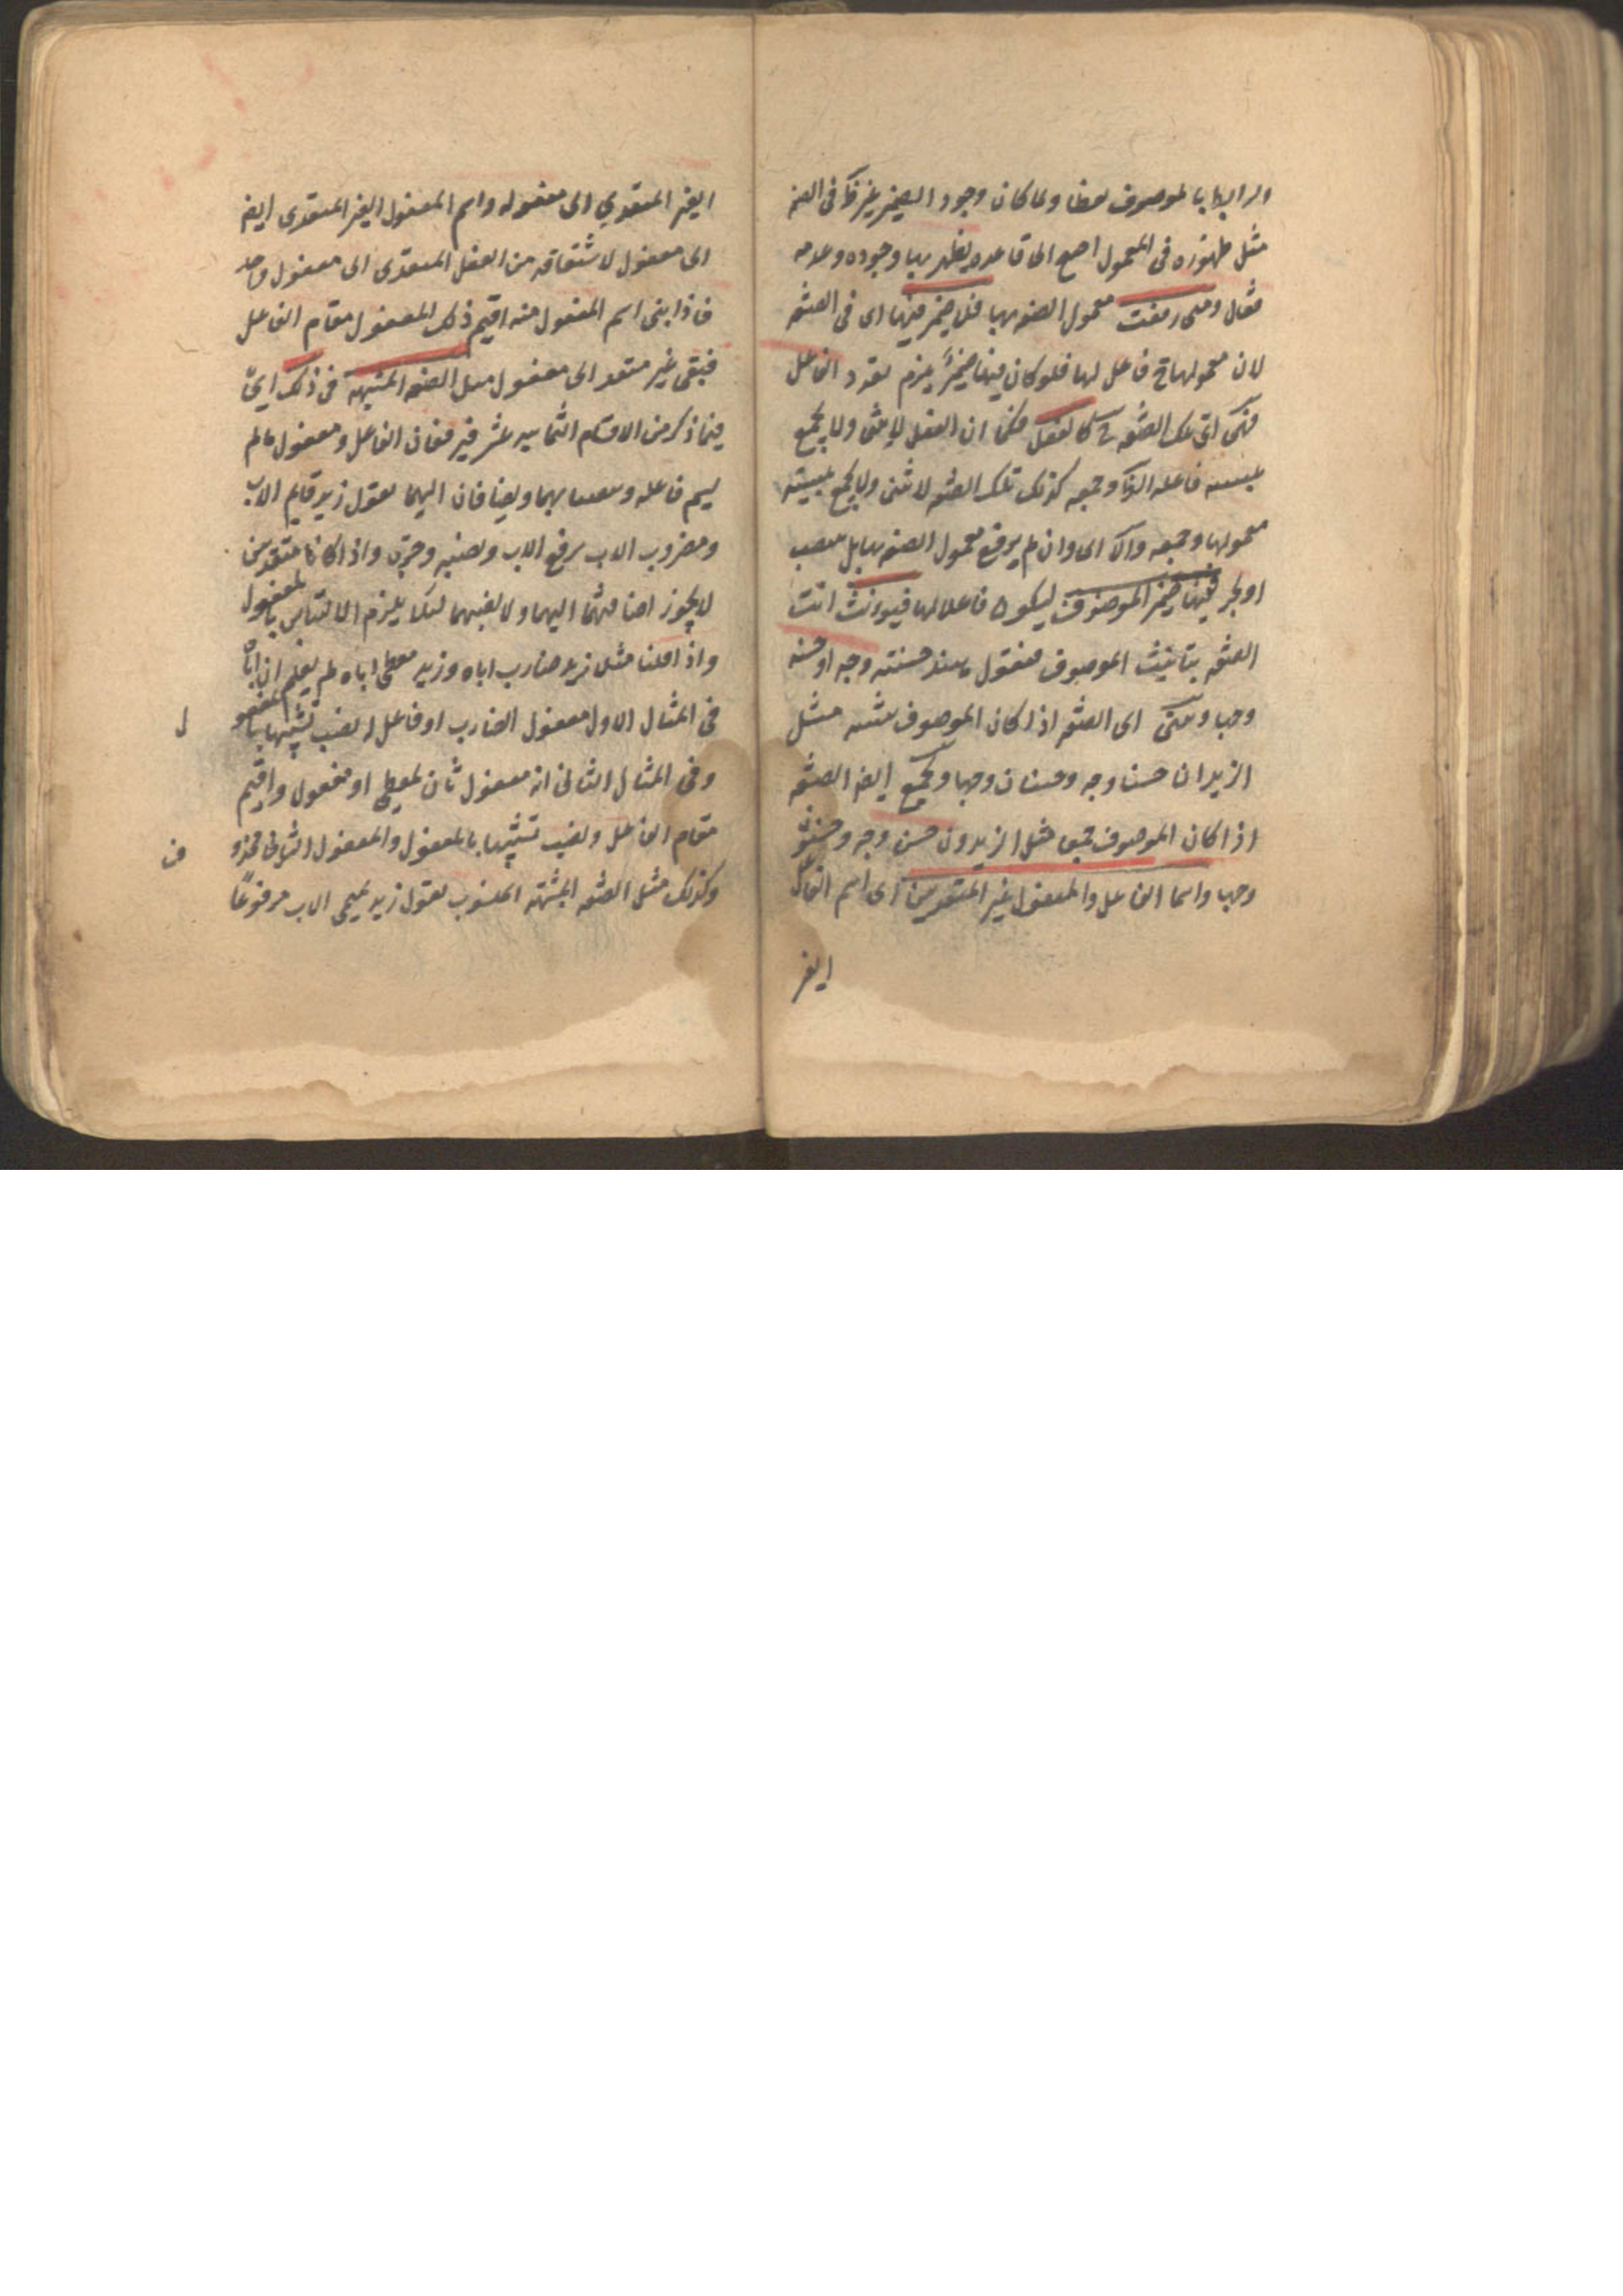 والرابط بالموصوف لفظا ولما كان وجود الضمير غير ظ فى الصفة
مثل ظهوره فى المعمول احتيج الى قاعدة يظهر بها وجوده وعدمه
فقال ومتى رفعت معمول الصفة بها فلا ضمير فيها اى فى الصفة
لان معمولها ح فاعل لها فلو كان فيها ضمير يلزم تعدد الفاعل
فهى اى تلك الصفة ح كالفعل فكما ان الفعل لا يثنى ولا يجمع
بتثنية فاعله الظ وجمعه كذلك تلك الصفة لا تثنى ولا يجمع بتثنية
معمولها وجمعه والا اى وان لم يرفع معمول الصفة بها بل ينصب
او يجر ففيها ضمير الموصوف ليكون فاعلا لها فيؤنث انت
الصفة بتانيث الموصوف فتقول هند حسنته وجه او حسنة
وجها وتثنى اى الصفة اذا كان الموصوف تثنية مثل
الزيدان حسنا وجه وحسنان وجها وتجمع ايضا الصفة
اذا كان الموصوف جمعا مثل الزيدون حسنو وجه وحسنون
وجها واسما الفاعل والمفعول غير المتعديين اى اسم الفاعل
الغير
الغير المتعدي الى مفعوله واسم المفعول الغير المتعدى ايضا
الى مفعول لاشتقاقه من الفعل المتعدى الى مفعول واحد
فاذا بنى اسم المفعول منه اقيم ذلك المفعول مقام الفاعل
فبقى غير متعد الى مفعول مثل الصفة المشبهة فى ذلك اى
فيما ذكر من الاقسام الثمانية عشر فيرفعان الفاعل ومفعول ما لم
يسم فاعله وينصبان بهما ويضافان اليهما تقول زيد قايم الاب
ومضروب الاب برفع الاب ونصبه وجره واذا كانا متعديين
لا يجوز اضافتهما اليهما ولا نصبهما لئلا يلزم الالتباس بالمفعول
واذا قلنا مثلا زيد ضارب اباه وزيد معطى اباه لم يعلم ان اباه
فى المثال الاول مفعول الضارب او فاعل له نصب تشبيها بالمفعول
وفى المثال الثانى انه مفعول ثان لمعطى او مفعول واقيم
مقام الفاعل ونصب تشبيها بالمفعول والمفعول الثانى محذوف
وكذلك مثل الصفة المشبهة المنسوب تقول زيد تميمى الاب مرفوعًا